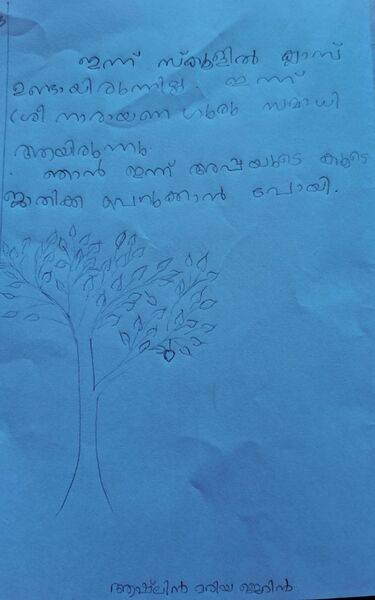 ഇന്ന് സ്കൂളിൽ ക്ലാസ്
ഉണ്ടായിരുന്നില്ല. ഇന്ന്
ശ്രീ നാരായണ ഗുരു സമാധി
ആയിരുന്നു.
ഞാൻ ഇന്ന് അപ്പയുടെ കൂടെ
ജാതിക്ക പെറുക്കാൻ പോയി.
ആഷ്‌ലിൻ മരിയ ജെറിൻ